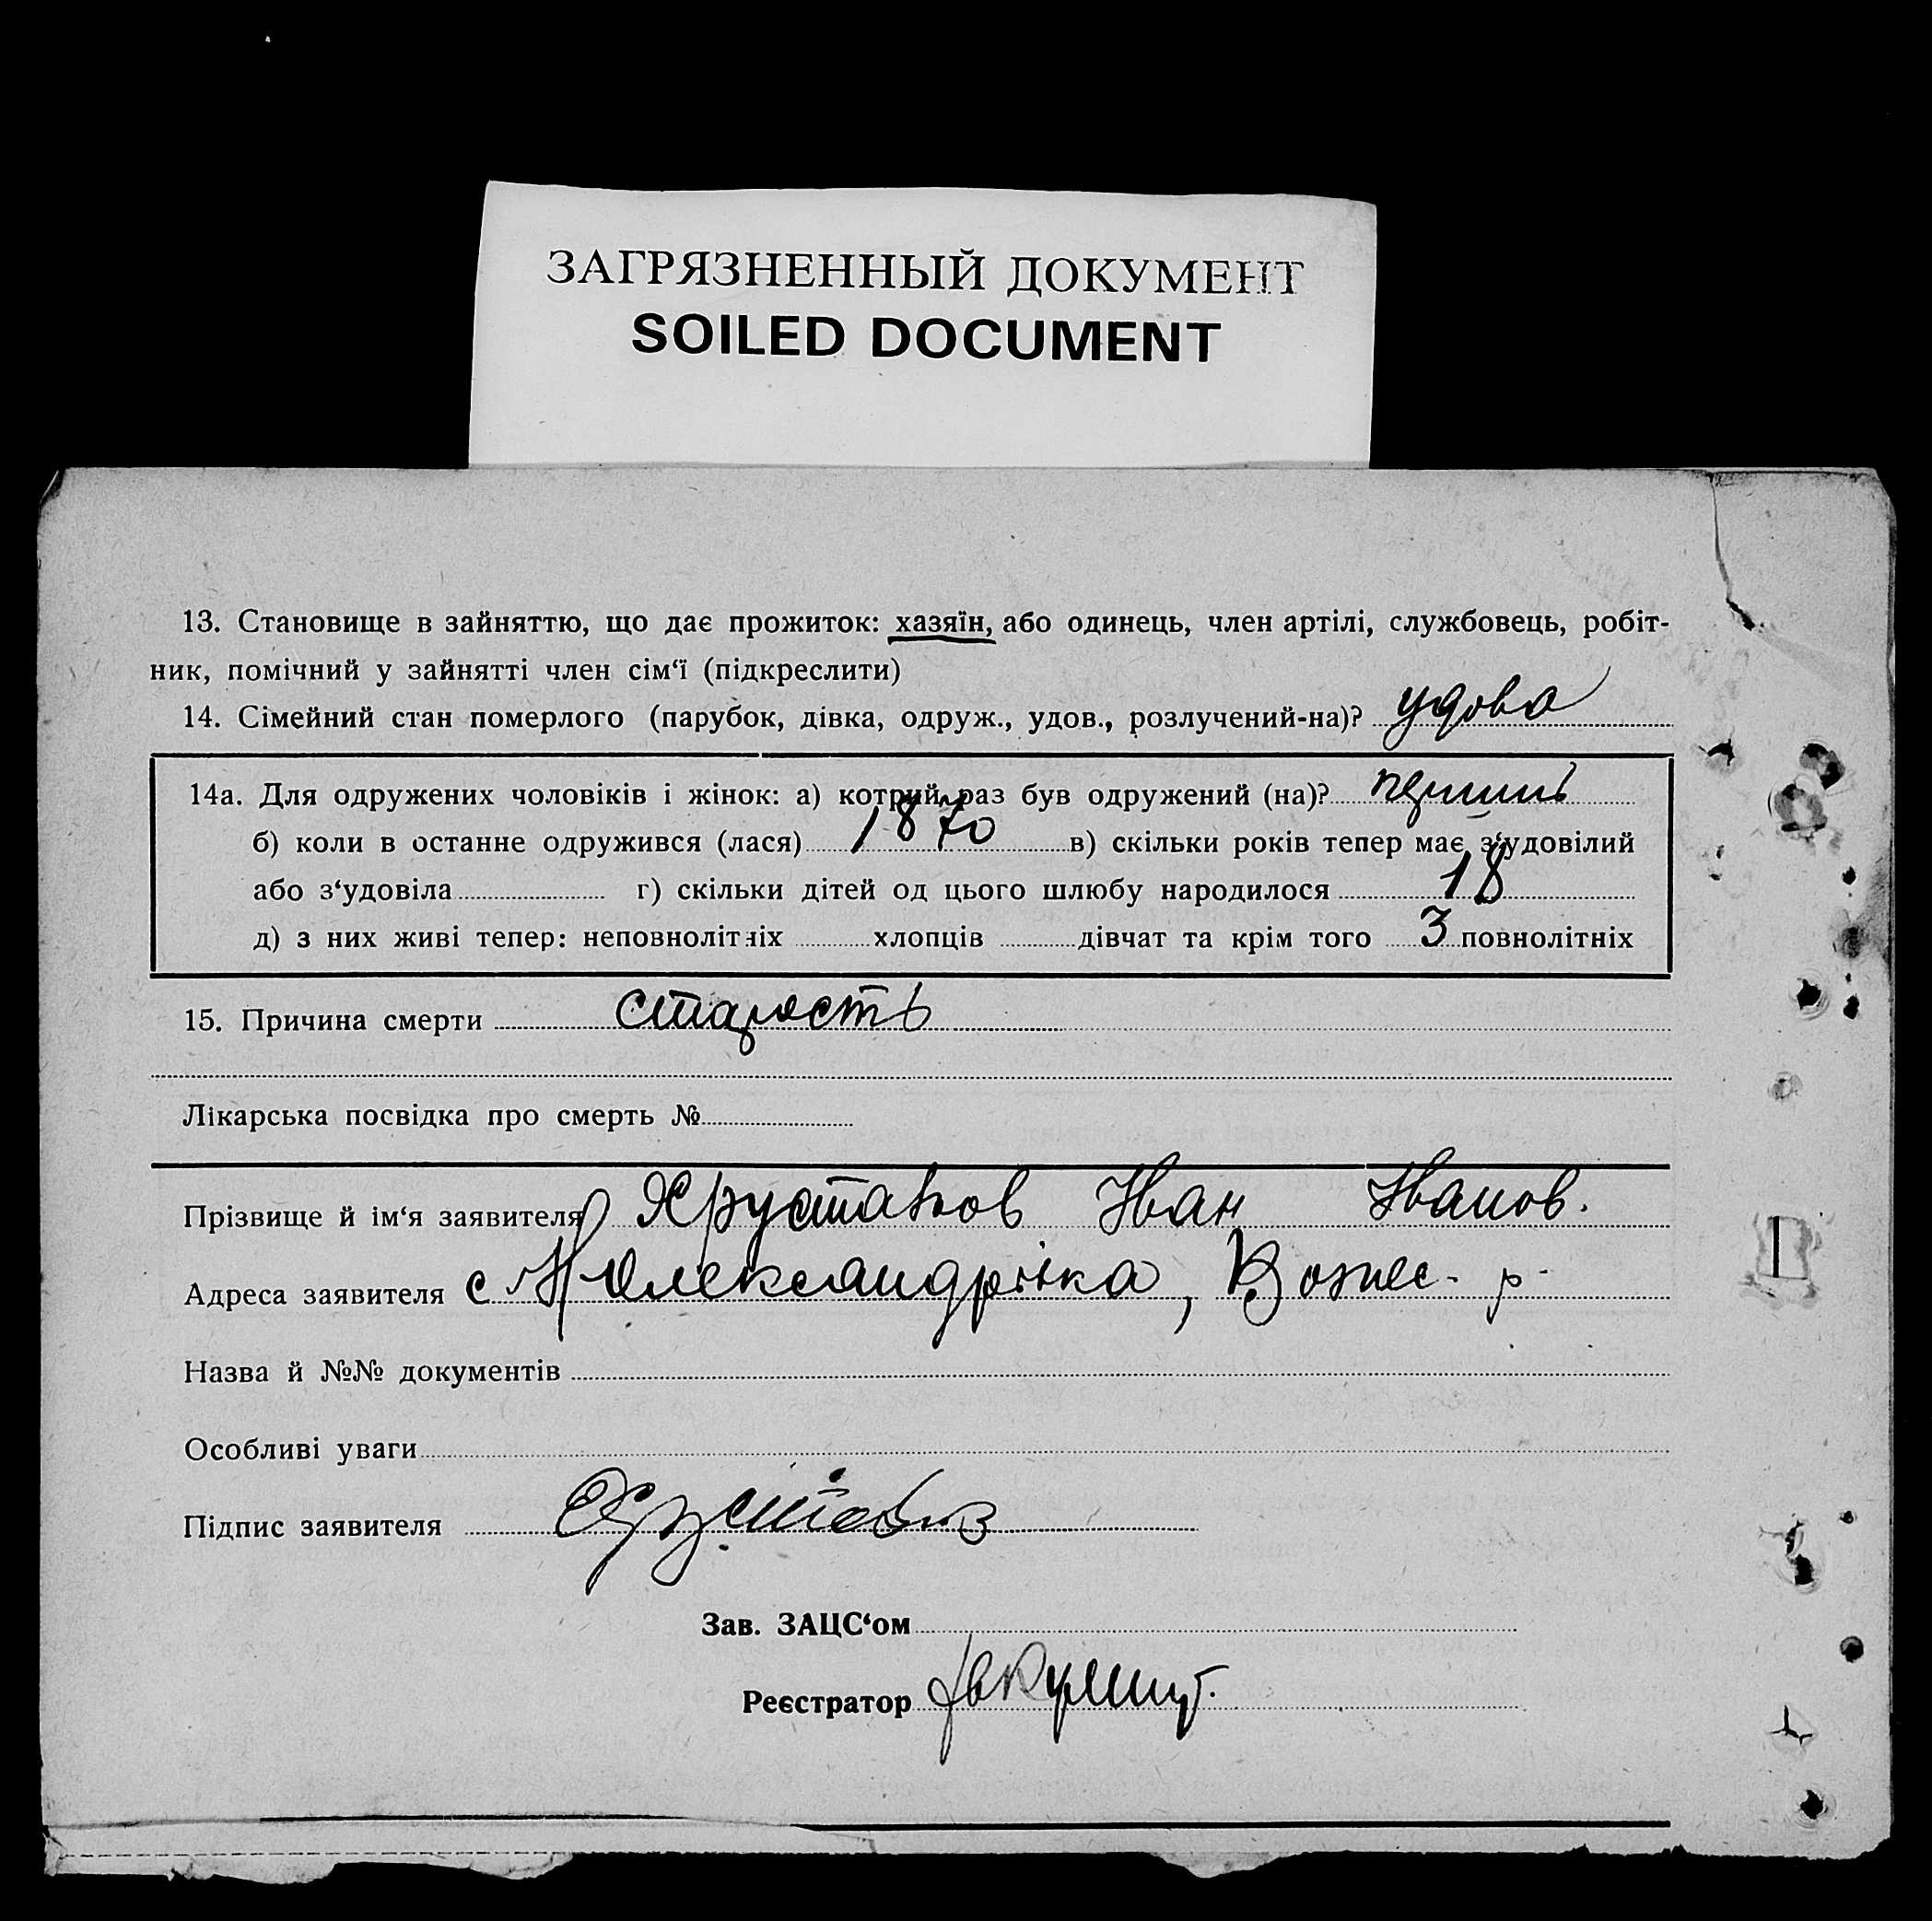 ЗАГРЯЗНЕННЫЙ ДОКУМЕНТ
SOILED DOCUMENT
13. Становище в зайняттю, що дає прожиток: хазяїн, або одинець, член артілі, службовець, робіт-
ник, помічний у зайнятті член сім‘ї (підкреслити)
14. Сімейний стан померлого (парубок, дівка, одруж., удов., розлучений-на)? удова
14а. Для одружених чоловіків і жінок: а) котрий раз був одружений (на)?
б) коли в останне одружився (лася) 1870 в) скільки років тепер має з‘удовілий
або з‘удовіла г) скільки дітей од цього шлюбу народилося 18
д) з них живі тепер: неповнолітніх хлопців дівчат та крім того 3 повнолітніх
15. Причина смерти старость
Лікарська посвідка про смерть №
Прізвище й ім‘я заявителя Иван Иванов.
Адреса заявителя с Н Олександрівка, Вознес. р.
Назва й №№ документів
Особливі уваги
Підпис заявителя
Зав. ЗАЦС‘ом
Реєстратор